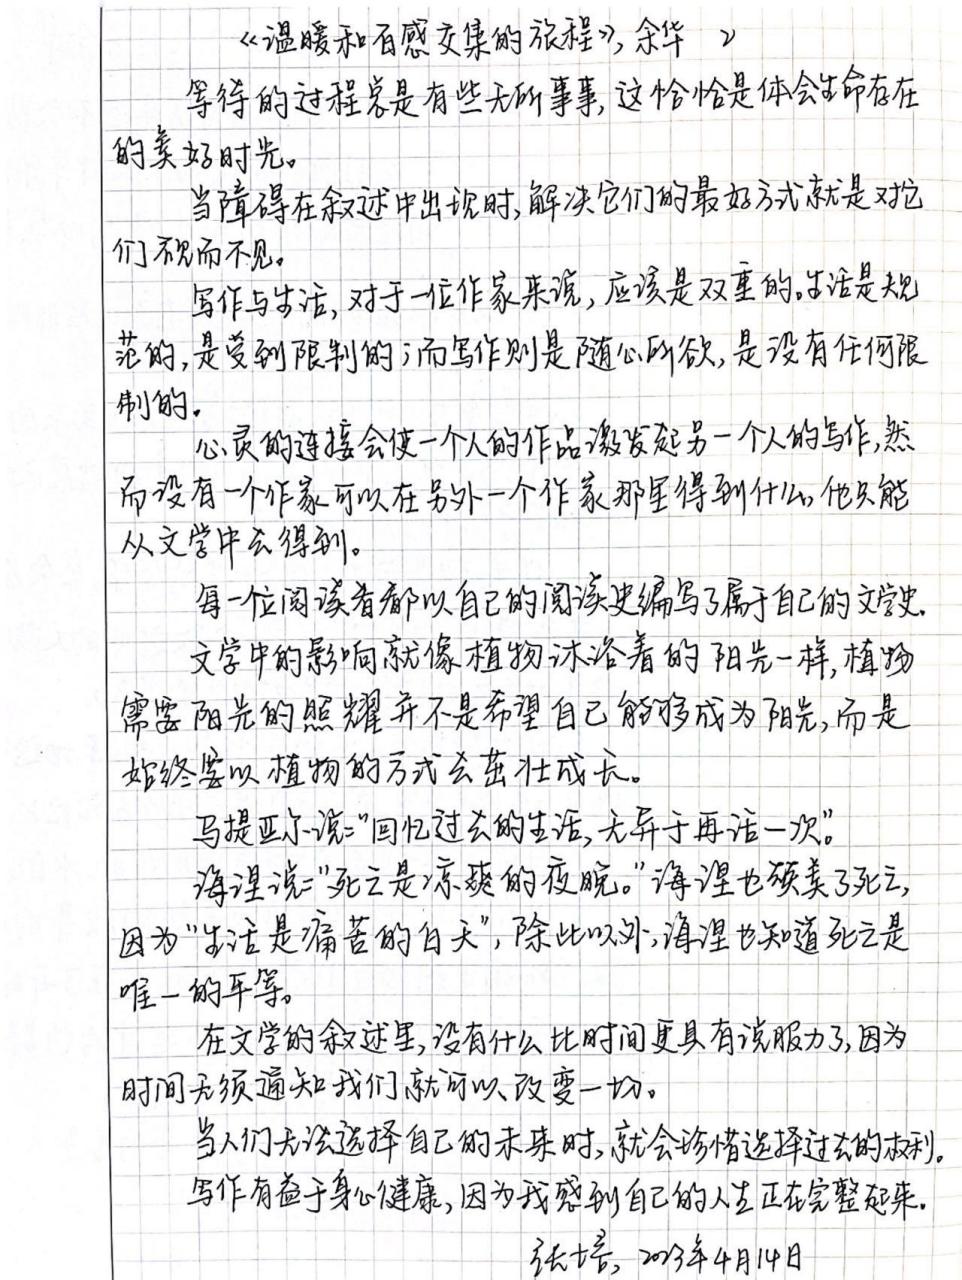 《温暖和百感交集的旅程》,余华 2
等待的过程总是有些无所事事,这恰恰是体会生命存在
的美好时光。
当障碍在叙述中出现时,解决它们的最好方式就是对它
们视而不见。
写作与生活,对于一位作家来说,应该是双重的。生活是规
范的,是受到限制的;而写作则是随心所欲,是没有任何限
制的。
心灵的连接会使一个人的作品激发起另一个人的写作,然
而没有一个作家可以在另外一个作家那里得到什么,他只能
从文学中去得到。
每一位阅读者都以自己的阅读史编写了属于自己的文学史.
文学中的影响就像植物沐浴着的阳光一样,植物
需要阳光的照耀并不是希望自己能够成为阳光,而是
始终要以植物的方式去茁壮成长。
马提亚尔说:"回忆过去的生活,无异于再活一次"。
海涅说:"死亡是凉爽的夜晚。"海涅也颂美了死亡,
因为"生活是痛苦的白天",除此以外,海涅也知道死亡是
唯一的平等。
在文学的叙述里,没有什么比时间更具有说服力了,因为
时间无须通知我们就可以改变一切。
当人们无法选择自己的未来时,就会珍惜选择过去的权利。
写作有益于身心健康,因为我感到自己的人生正在完整起来.
张培,2023年4月14日